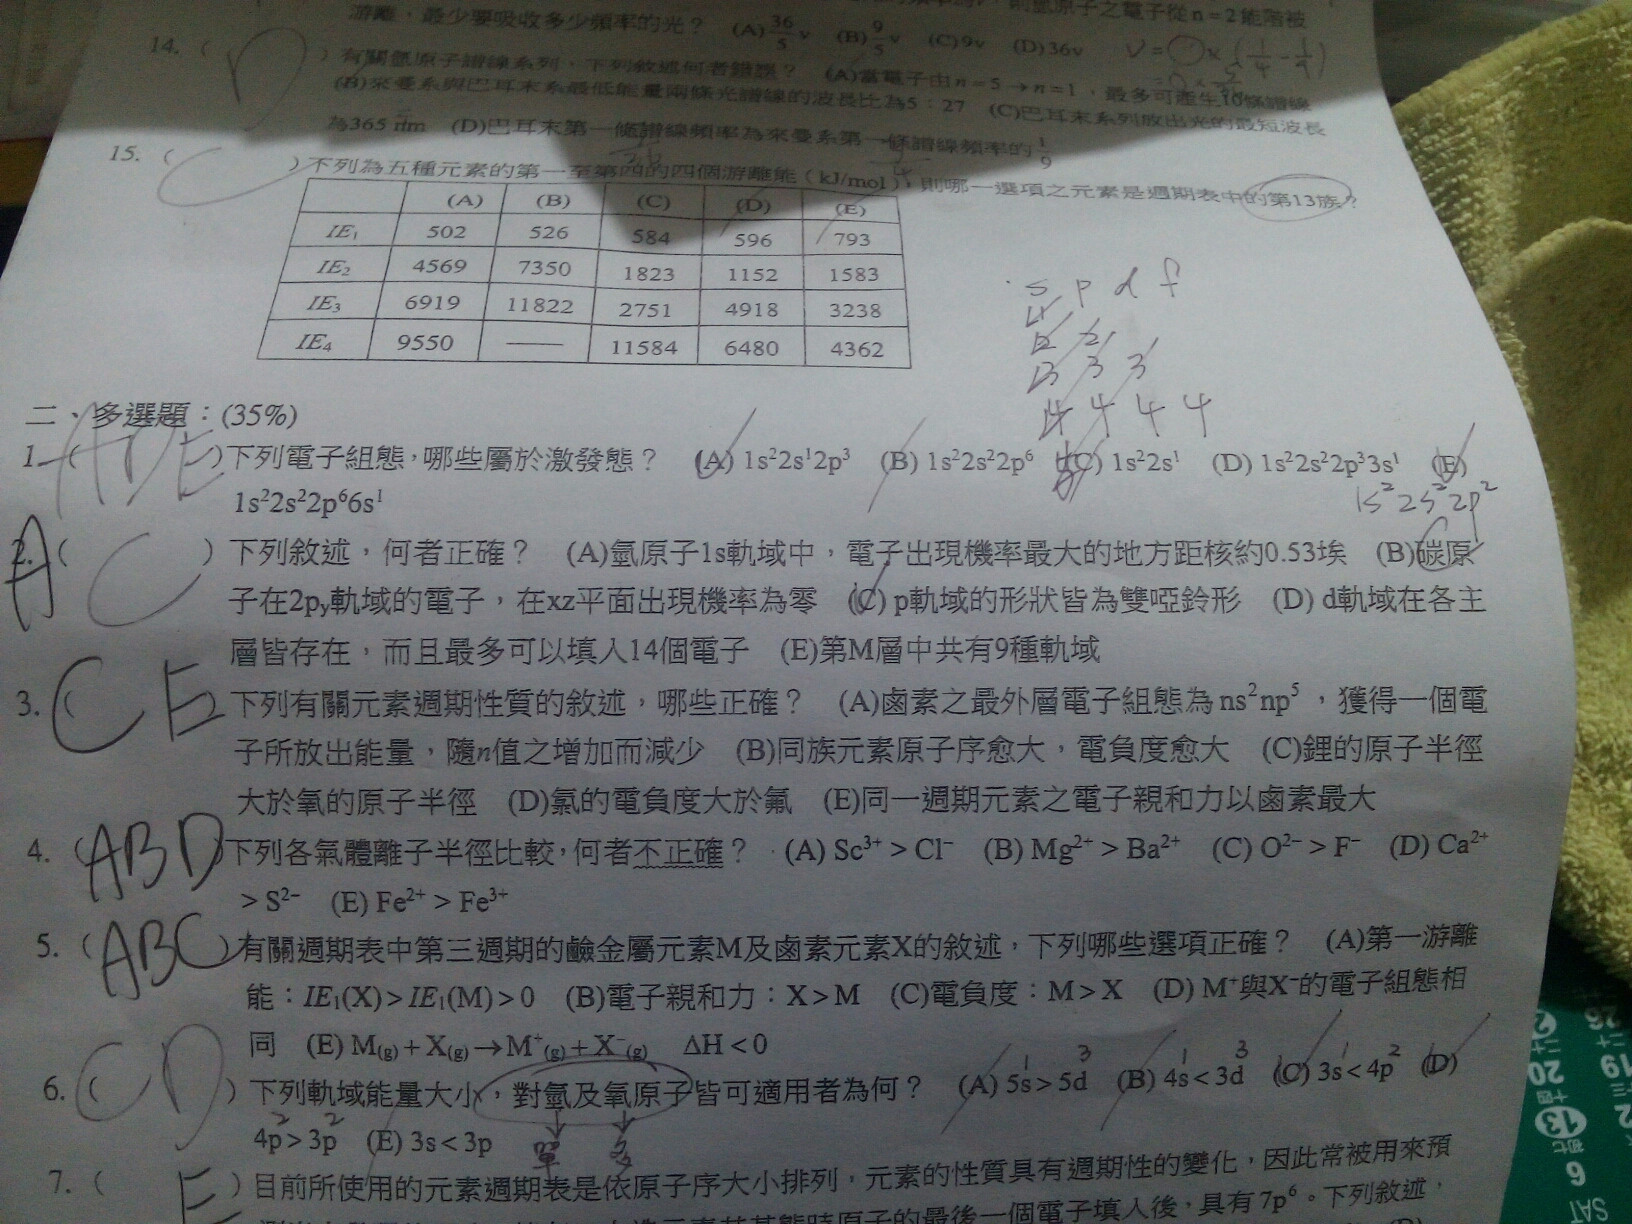 游離，最少要吸收多少頻率的光？ (A) 36/5 ν (B) 9/5 ν (C)9ν (D)36ν
則氫原子之電子從n=2能階被
14. ( D ) 有關氫原子譜線系列，下列敘述何者錯誤？ (A)當電子由n=5→n=1，最多可產生10條譜線
(B)來曼系與巴耳末系最低能量兩條光譜線的波長比為5：27 (C)巴耳末系列放出光的最短波長
為365 nm (D)巴耳末第一條譜線頻率為來曼系第一條譜線頻率的1/9
15. ( C ) 下列為五種元素的第一至第四的四個游離能（kJ/mol），則哪一選項之元素是週期表中的第13族？
(A) (B) (C) (D) (E)
IE₁ 502 526 584 596 793
IE₂ 4569 7350 1823 1152 1583
IE₃ 6919 11822 2751 4918 3238
IE₄ 9550 —— 11584 6480 4362
s p d f
4 4 4 4
二、多選題：(35%)
1. ( ADE ) 下列電子組態，哪些屬於激發態？ (A) 1s²2s¹2p³ (B) 1s²2s²2p⁶ (C) 1s²2s¹ (D) 1s²2s²2p³3s¹ (E)
1s²2s²2p⁶6s¹
1s² 2s² 2p²
2. ( C ) 下列敘述，何者正確？ (A)氫原子1s軌域中，電子出現機率最大的地方距核約0.53埃 (B)碳原
A
子在2py軌域的電子，在xz平面出現機率為零 (C) p軌域的形狀皆為雙啞鈴形 (D) d軌域在各主
層皆存在，而且最多可以填入14個電子 (E)第M層中共有9種軌域
3. ( CE 下列有關元素週期性質的敘述，哪些正確？ (A)鹵素之最外層電子組態為ns²np⁵，獲得一個電
子所放出能量，隨n值之增加而減少 (B)同族元素原子序愈大，電負度愈大 (C)鋰的原子半徑
大於氧的原子半徑 (D)氯的電負度大於氟 (E)同一週期元素之電子親和力以鹵素最大
4. ( ABD 下列各氣體離子半徑比較，何者不正確？ (A) Sc³⁺ > Cl⁻ (B) Mg²⁺ > Ba²⁺ (C) O²⁻ > F⁻ (D) Ca²⁺
> S²⁻ (E) Fe²⁺ > Fe³⁺
5. ( ABC ) 有關週期表中第三週期的鹼金屬元素M及鹵素元素X的敘述，下列哪些選項正確？ (A)第一游離
能：IE₁(X) > IE₁(M) > 0 (B)電子親和力：X > M (C)電負度：M > X (D) M⁺與X⁻的電子組態相
同 (E) M(g) + X(g) → M⁺(g) + X⁻(g) ΔH < 0
6. ( CD ) 下列軌域能量大小，對氫及氧原子皆可適用者為何？ (A) 5s > 5d (B) 4s < 3d (C) 3s < 4p (D)
4p > 3p (E) 3s < 3p
單 多
7. ( E ) 目前所使用的元素週期表是依原子序大小排列，元素的性質具有週期性的變化，因此常被用來預
的最後一個電子填入後，具有7p⁶。下列敘述，
26 19 2
21 20 13 6
SAT